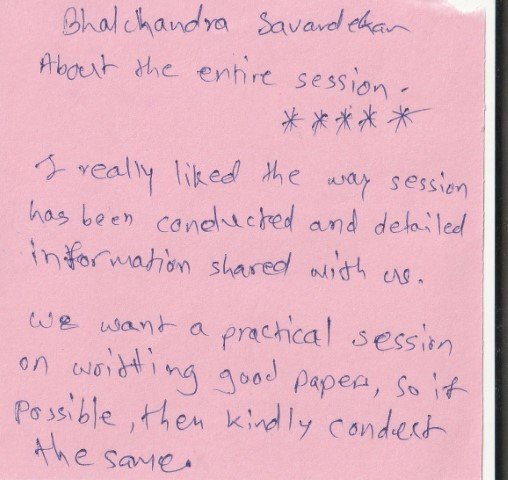 Bhalchandra Savardekar
About the entire session.
*****
I really liked the way session
has been conducted and detailed
information shared with us.
We want a practical session
on writting good papers, so if
possible, then kindly conduct
the same.